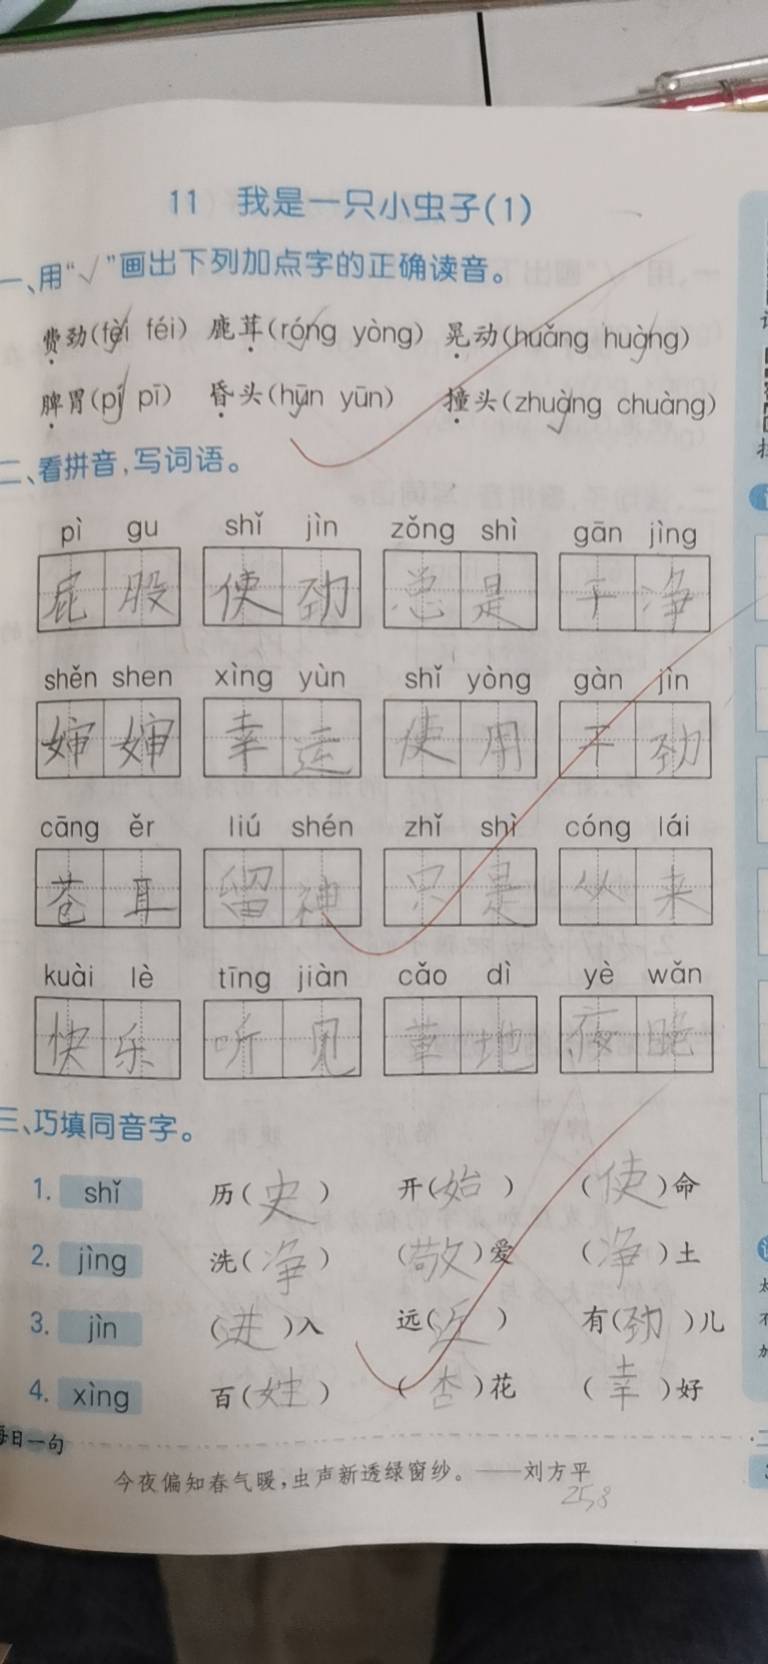 11 我是一只小虫子(1)
一、用“√”画出下列加点字的正确读音。
费劲(fèi féi) 鹿茸(róng yòng) 晃动(huǎng huàng)
脾胃(pí pī) 昏头(hūn yūn) 撞头(zhuàng chuàng)
二、看拼音,写词语。
pì gu shǐ jìn zǒng shì gān jìng
屁股 使劲 总是 干净
shěn shen xìng yùn shǐ yòng gàn jìn
婶婶 幸运 使用 干劲
cāng ěr liú shén zhǐ shì cóng lái
苍耳 留神 只是 从来
kuài lè tīng jiàn cǎo dì yè wǎn
快乐 听见 草地 夜晚
三、巧填同音字。
1. shǐ 历(史) 开(始) (使)命
2. jìng 洗(净) (敬)爱 (净)土
3. jìn (进)入 远(近) 有(劲)儿
4. xìng 百(姓) (杏)花 (幸)好
每日一句
今夜偏知春气暖,虫声新透绿窗纱。——刘方平